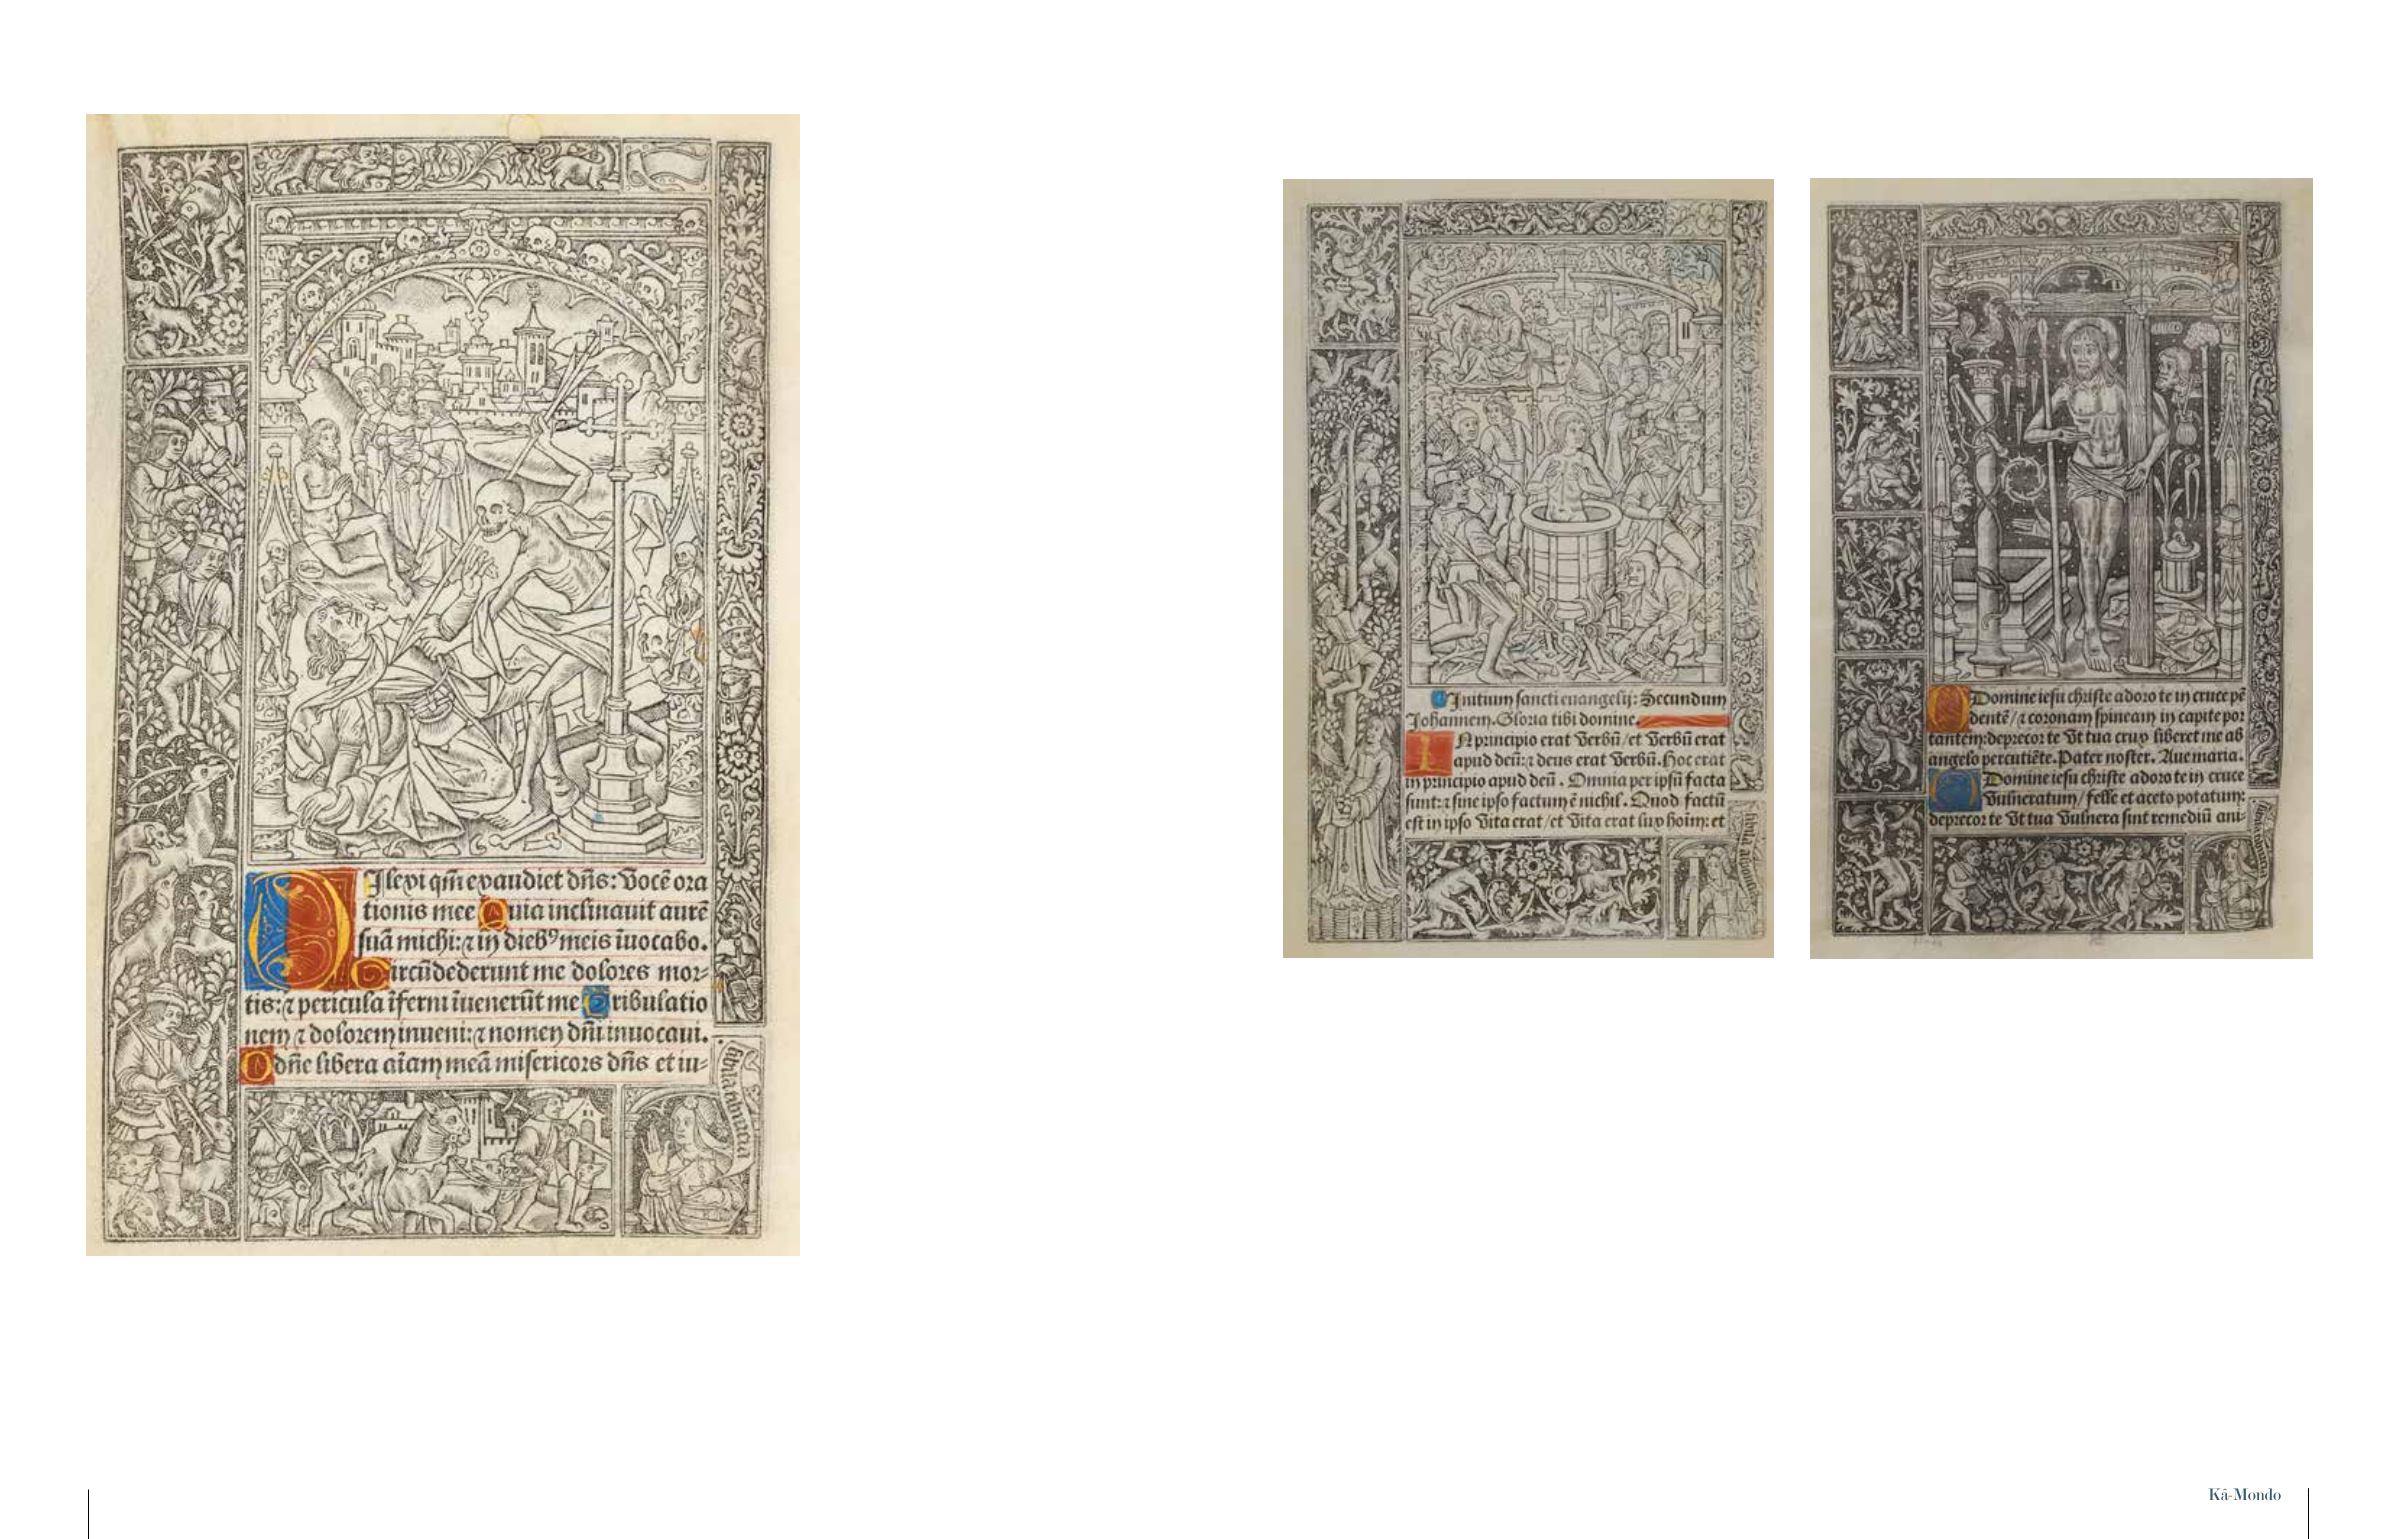 Ilexi qm̃ exaudiet dñs: Vocē ora
tionis mee Quia inclinauit aurē
suā michi: ⁊ in diebꝰ meis īuocabo.
Circūdederunt me dolores mor⸗
tis: ⁊ pericula īferni īuenerūt me Tribulatio
nem ⁊ dolorem inueni: ⁊ nomen dñi inuocaui.
O dñe libera aīam meā misericors dñs et iu⸗
sibilla tiburtina
Initium sancti euangelij: Secundum
Johannem. Gloria tibi domine.
IN principio erat Verbū / et Verbū erat
apud deū: ⁊ deus erat Verbū. Hoc erat
in principio apud deū. Omnia per ipsū facta
sunt: ⁊ sine ipso factum ē nichil. Quod factū
est in ipso Vita erat / et Vita erat lux hoīm: et
sibilla
O Domine iesu christe adoro te in cruce pē
dentē / ⁊ coronam spineam in capite por
tantem: deprecor te Vt tua crux liberet me ab
angelo percutiēte. Pater noster. Aue maria.
O Domine iesu christe adoro te in cruce
Vulneratum / felle et aceto potatum:
deprecor te Vt tua Vulnera sint remediū ani⸗
Kâ-Mondo